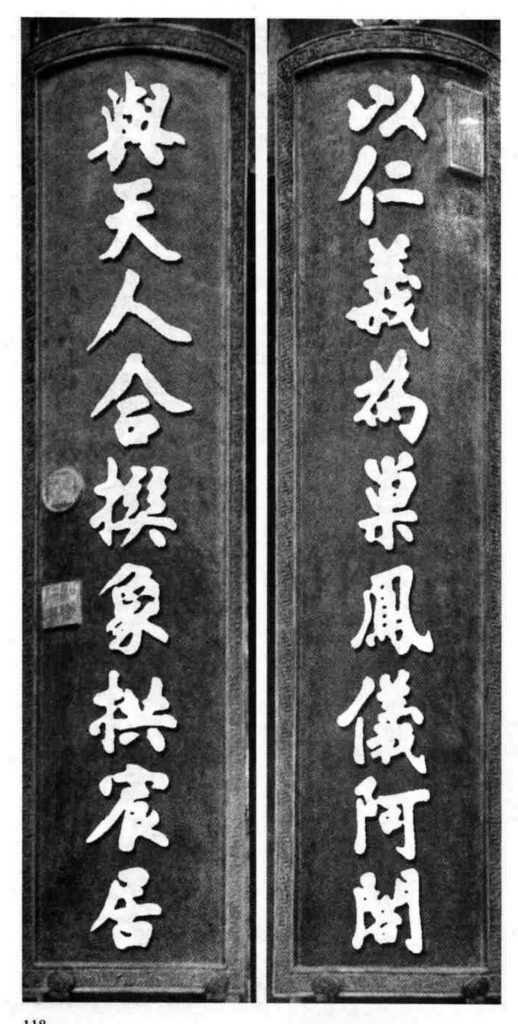 以仁義為巢鳳儀阿閣
與天人合撰象拱宸居
118